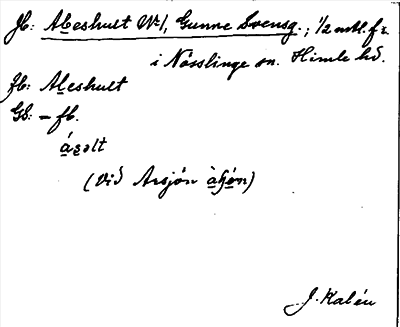 Jb: Abeshult Nr 1, Gunne Svensg.; 1/2 mtl. fr.
i Nösslinge sn. Himle hd.
Fb: Aleshult
GS: – fb.
ásəlt
(Vid Arsjön
J. Kalén